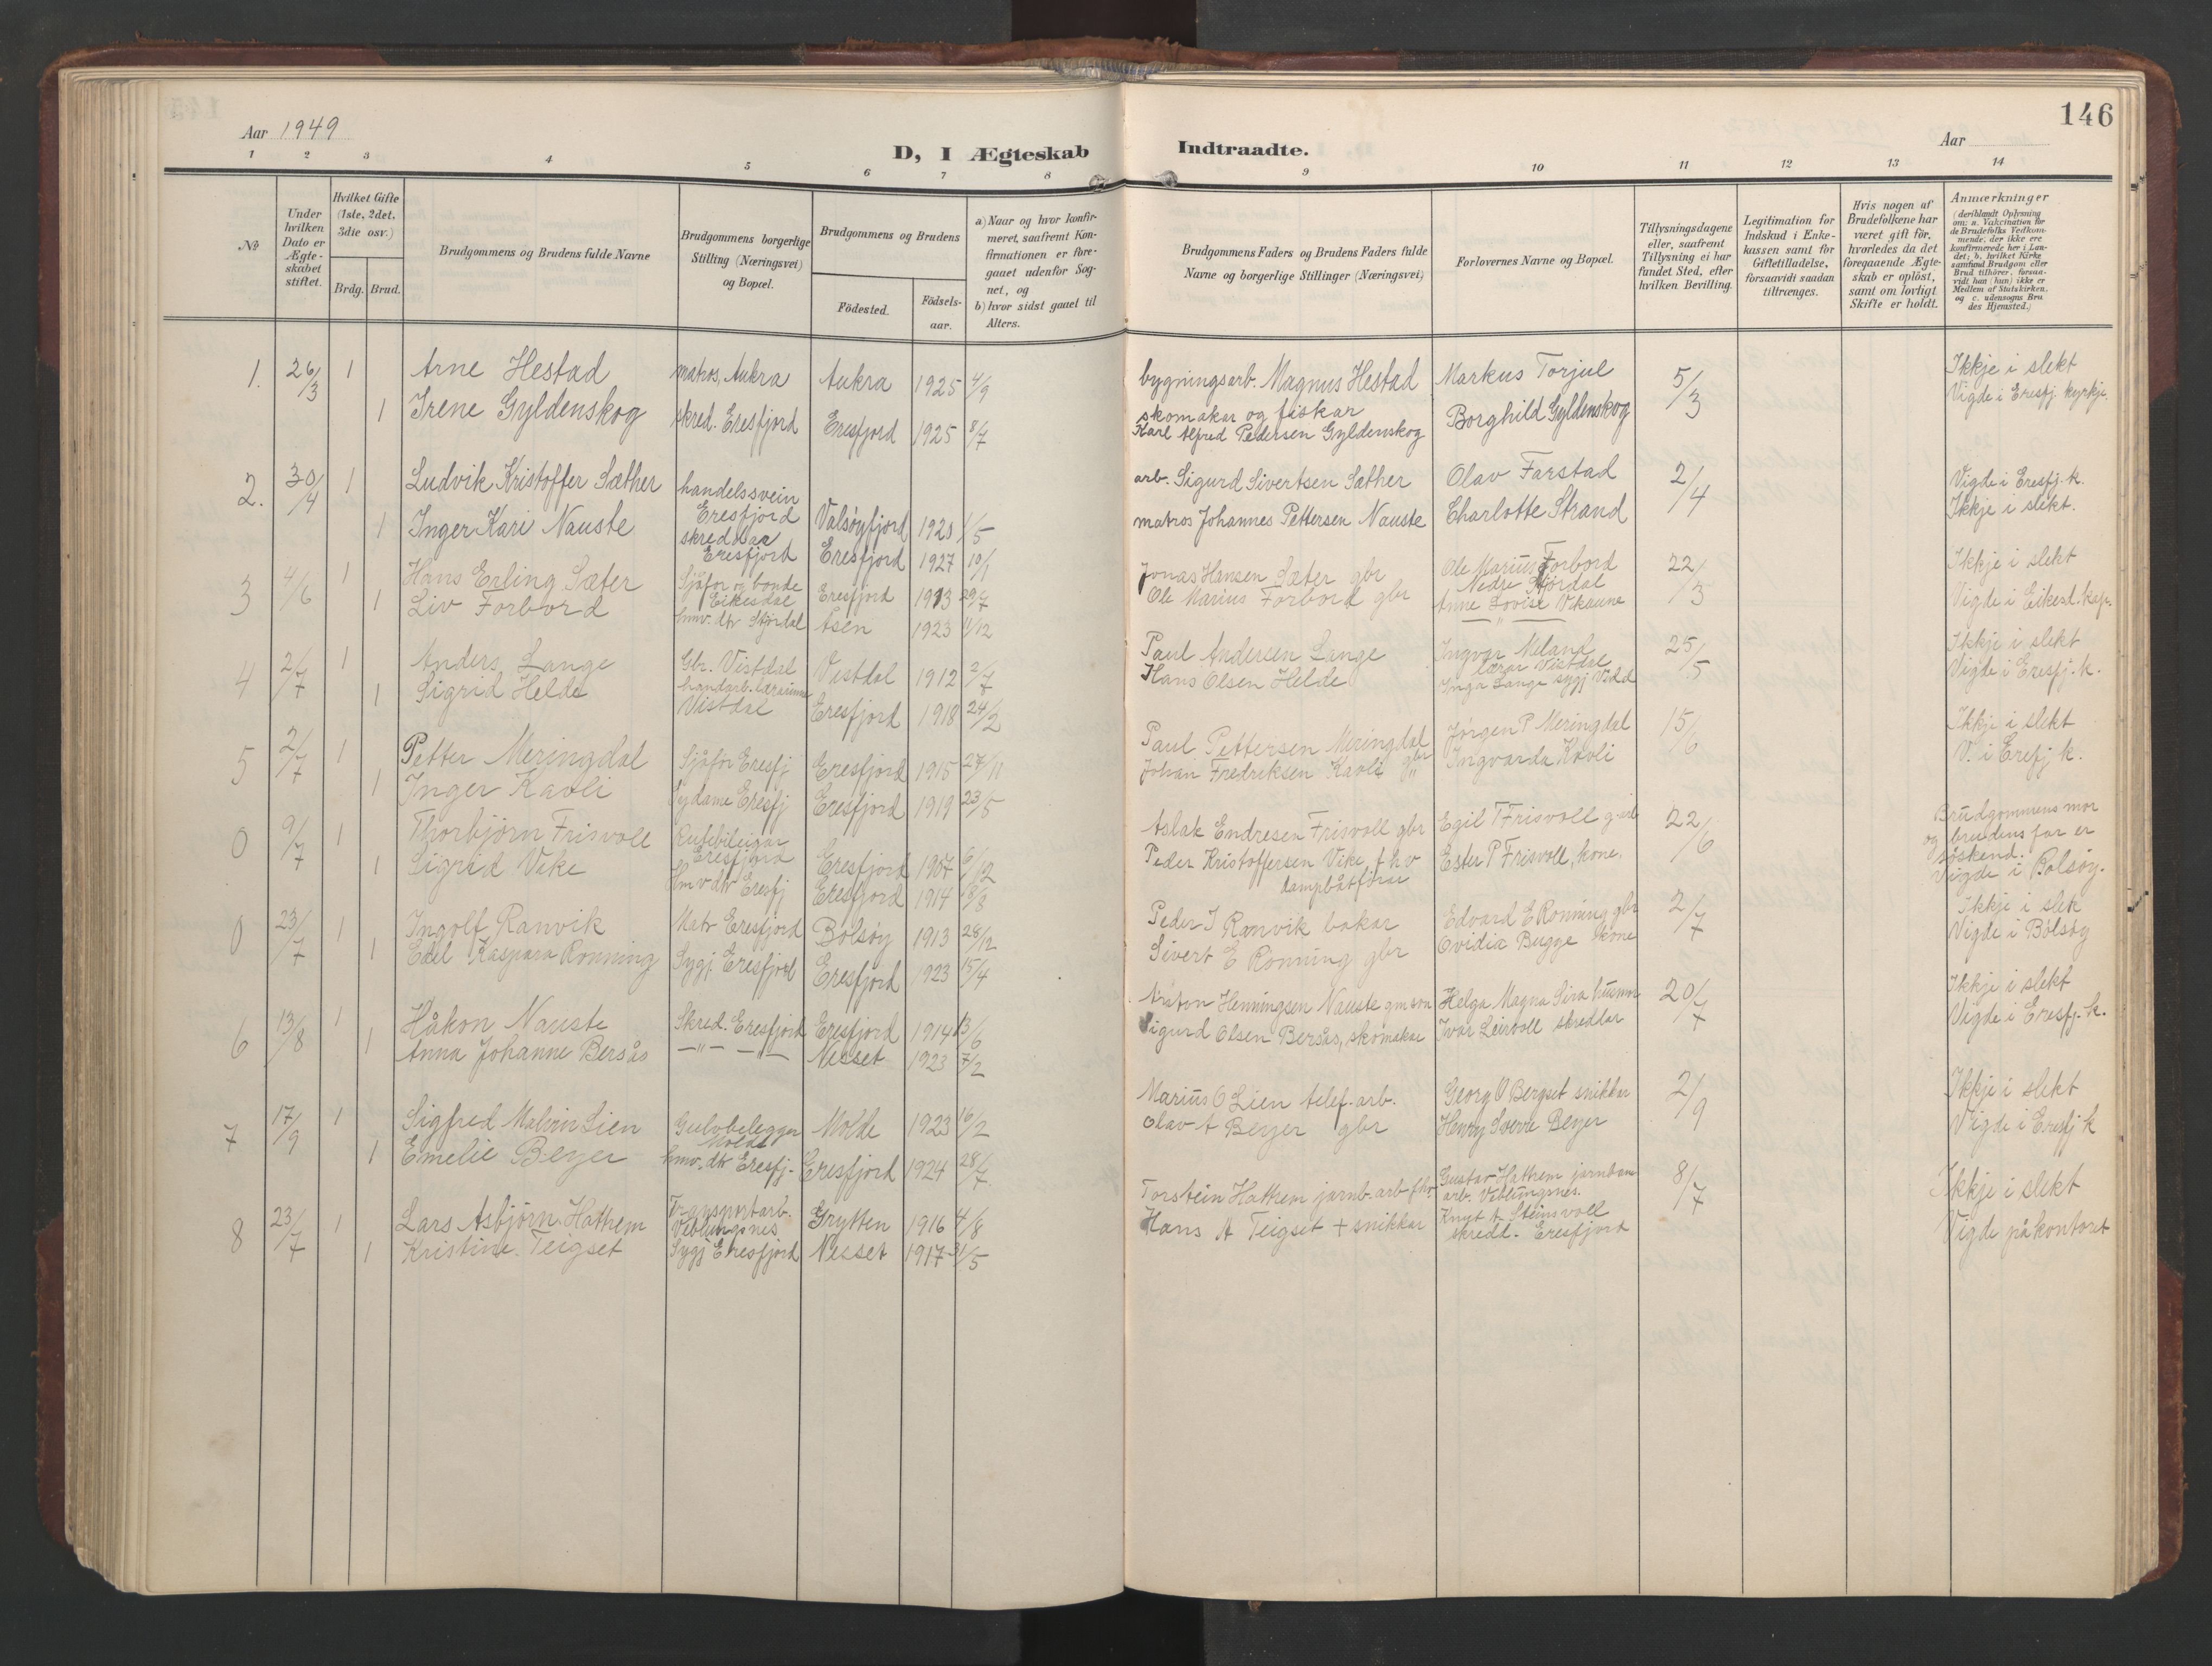 Aar 1949
D, I Ægteskab
Indtraadte.
Aar
146
1 2 3 4 5 6 7 8 9 10 11 12 13 14
No
Under hvilken Dato er Ægte-skabet stiftet.
Hvilket Gifte (1ste, 2det, 3die osv.)
Brdg. Brud.
Brudgommens og Brudens fulde Navne
Brudgommens borgerlige Stilling (Næringsvei) og Bopæl.
Brudgommens og Brudens
Födested.
Födsels-aar.
a) Naar og hvor konfir-meret, saafremt Kon-firmationen er fore-gaaet udenfor Sog-net, og
b) hvor sidst gaaet til Alters.
Brudgommens Faders og Brudens Faders fulde Navne og borgerlige Stillinger (Næringsvei)
Forlovernes Navne og Bopæl.
Tillysningsdagene eller, saafremt Tillysning ei har fundet Sted, efter hvilken Bevilling.
Legitimation for Indskud i Enke-kassen samt for Giftetilladelse, forsaavidt saadan tiltrænges.
Hvis nogen af Brudefolkene har været gift før, hvorledes da det foregaaende Ægte-skab er oplöst, samt om lovligt Skifte er holdt.
Anmærkninger
(deriblandt Oplysning om: a. Vakcination for de Brudefolks Vedkom-mende, der ikke ere konfirmerede her i Lan-det; b. hvilket Kirke samfund Brudgom eller Brud tilhörer, forsaa-vidt han (hun) ikke er Medlem af Statskirken, og c. udensogns Bru des Hjemsted.)
1. 26/3 1 Arne Hestad matros, Aukra Aukra 1925 4/9 bygningsarb. Magnus Hestad Markus Torjul 5/3 Ikkje i slekt
1 Irene Gyldenskog skred. Eresfjord Eresfjord 1925 8/7 skomakar og fiskar Karl Alfred Pedersen Gyldenskog Borghild Gyldenskog Vigde i Eresfj. kyrkje.
2. 30/4 1 Ludvik Kristoffer Sæther handelssvein Eresfjord Valsøyfjord 1925 1/5 arb. Sigurd Sivertsen Sæther Olav Farstad 2/4 Vigde i Eresfj. k.
1 Inger Kari Nauste Eresfjord Eresfjord 1927 10/1 matros Johannes Pettersen Nauste Charlotte Strand Ikkje i slekt.
3 4/6 1 Hans Erling Sæter Sjåfør og bonde Eikesdal Eresfjord 1913 29/7 Jonas Hansen Sæter gbr Ole Marius Forbord Nedre Stjørdal 22/3 Ikkje i slekt
1 Liv Forbord hmv. dtr Stjørdal Åsen 1923 11/12 Ole Marius Forbord gbr Anne Lovise Vikaune — " — Vigde i Eikesd. kap.
4 2/7 1 Anders Lange Gbr. Vistdal Vistdal 1912 2/7 Paul Andersen Lange Ingvar Meland lærar Vistdal 25/5 Ikkje i slekt
1 Sigrid Helde handarb. lærarinne Vistdal Eresfjord 1918 24/2 Hans Olsen Helde Inga Lange sygj Vistd Vigde i Eresfj. k.
5 2/7 1 Petter Meringdal Sjåfør Eresfj Eresfjord 1915 27/11 Paul Pettersen Meringdal gbr Jørgen P Meringdal 15/6 Ikkje i slekt
1 Inger Kavli Sydame Eresfj Eresfjord 1919 23/5 Johan Fredriksen Kavli " Ingvarda Kavli V. i Eresfj k.
0 9/7 1 Thorbjørn Frisvoll Rutebileigar Eresfjord Eresfjord 1907 6/12 Aslak Endresen Frisvoll gbr Egil T Frisvoll g.arb 22/6 Brudgommens mor og brudens far er søskend.
1 Sigrid Vike Hmv dtr Eresfj Eresfjord 1914 18/8 Peder Kristoffersen Vike, f.h.v dampbåtfører Ester P Frisvoll, kone. Vigde i Bolsøy.
0 23/7 1 Ingolf Ranvik Matr Eresfjord Bolsøy 1913 28/12 Peder J Ranvik bakar Edvard E Rønning gbr 2/7 Ikkje i slek
1 Edel Kaspara Rønning Sygj. Eresfjord Eresfjord 1923 15/4 Sivert E Rønning gbr Ovidia Bugge kone Vigde i Bolsøy
6 13/8 1 Håkon Nauste Skred. Eresfjord Eresfjord 1914 13/6 Anton Henningsen Nauste gm son Helga Magna Sira husmor 20/7 Ikkje i slekt
1 Anna Johanne Bersås — " — — " — Nesset 1923 7/2 Sigurd Olsen Bersås, skomakar Ivar Leirvoll skreddar Vigde i Eresfj. k.
7 17/9 1 Sigfred Malvin Lien Gulvbelegger Molde Molde 1923 16/2 Marius O Lien telef. arb. Georg O Bergset snikkar 2/9 Ikkje i slekt
1 Emelie Beyer hmv. dtr Eresfj. Eresfjord 1924 28/7 Olav A Beyer gbr Henry Sverre Beyer Vigde i Eresfj k
8 23/7 1 Lars Asbjørn Hathem Transportarb. Veblungsnes Grytten 1916 4/8 Torstein Hathem jarnb. arb fhv. Gustav Hathem jarnban arb. Veblungsnes. 8/7 Ikkje i slekt
1 Kristine Teigset Sygj Eresfjord Nesset 1917 31/5 Hans A Teigset + snikkar Knut A Steinsvoll skredd. Eresfjord Vigde på kontoret